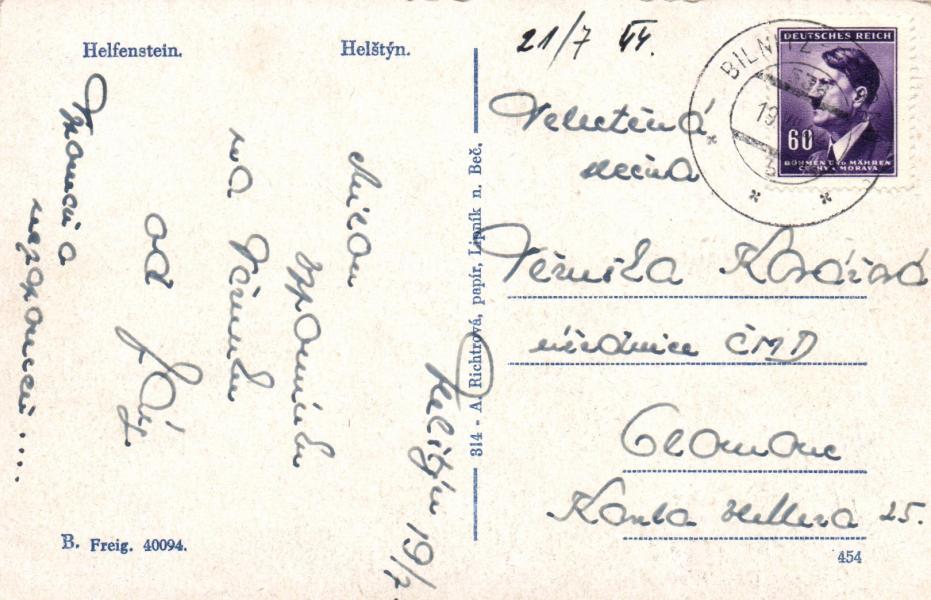 Helfenstein.
Helštýn.
Helštýn 19/7.
vzpomínku
na
od
Vzpomeň a
nezapomeň....
B. Freig. 40094.
314 - A. Richtrová, papír, Lipník n. Beč.
21/7 44.
DEUTSCHES REICH
60
BÖHMEN UND MÄHREN
ČECHY A MORAVA
BILNITZ
19
Velectěná
slečna
Věruška Kovářová
úřednice ČMD
Olomouc
Karla Hellera 25.
454